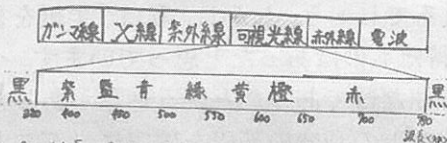 ガンマ線 X線 紫外線 可視光線 赤外線 電波
黒 紫 監 青 緑 黄 橙 赤 黒
400 450 500 550 600 650 700
波長